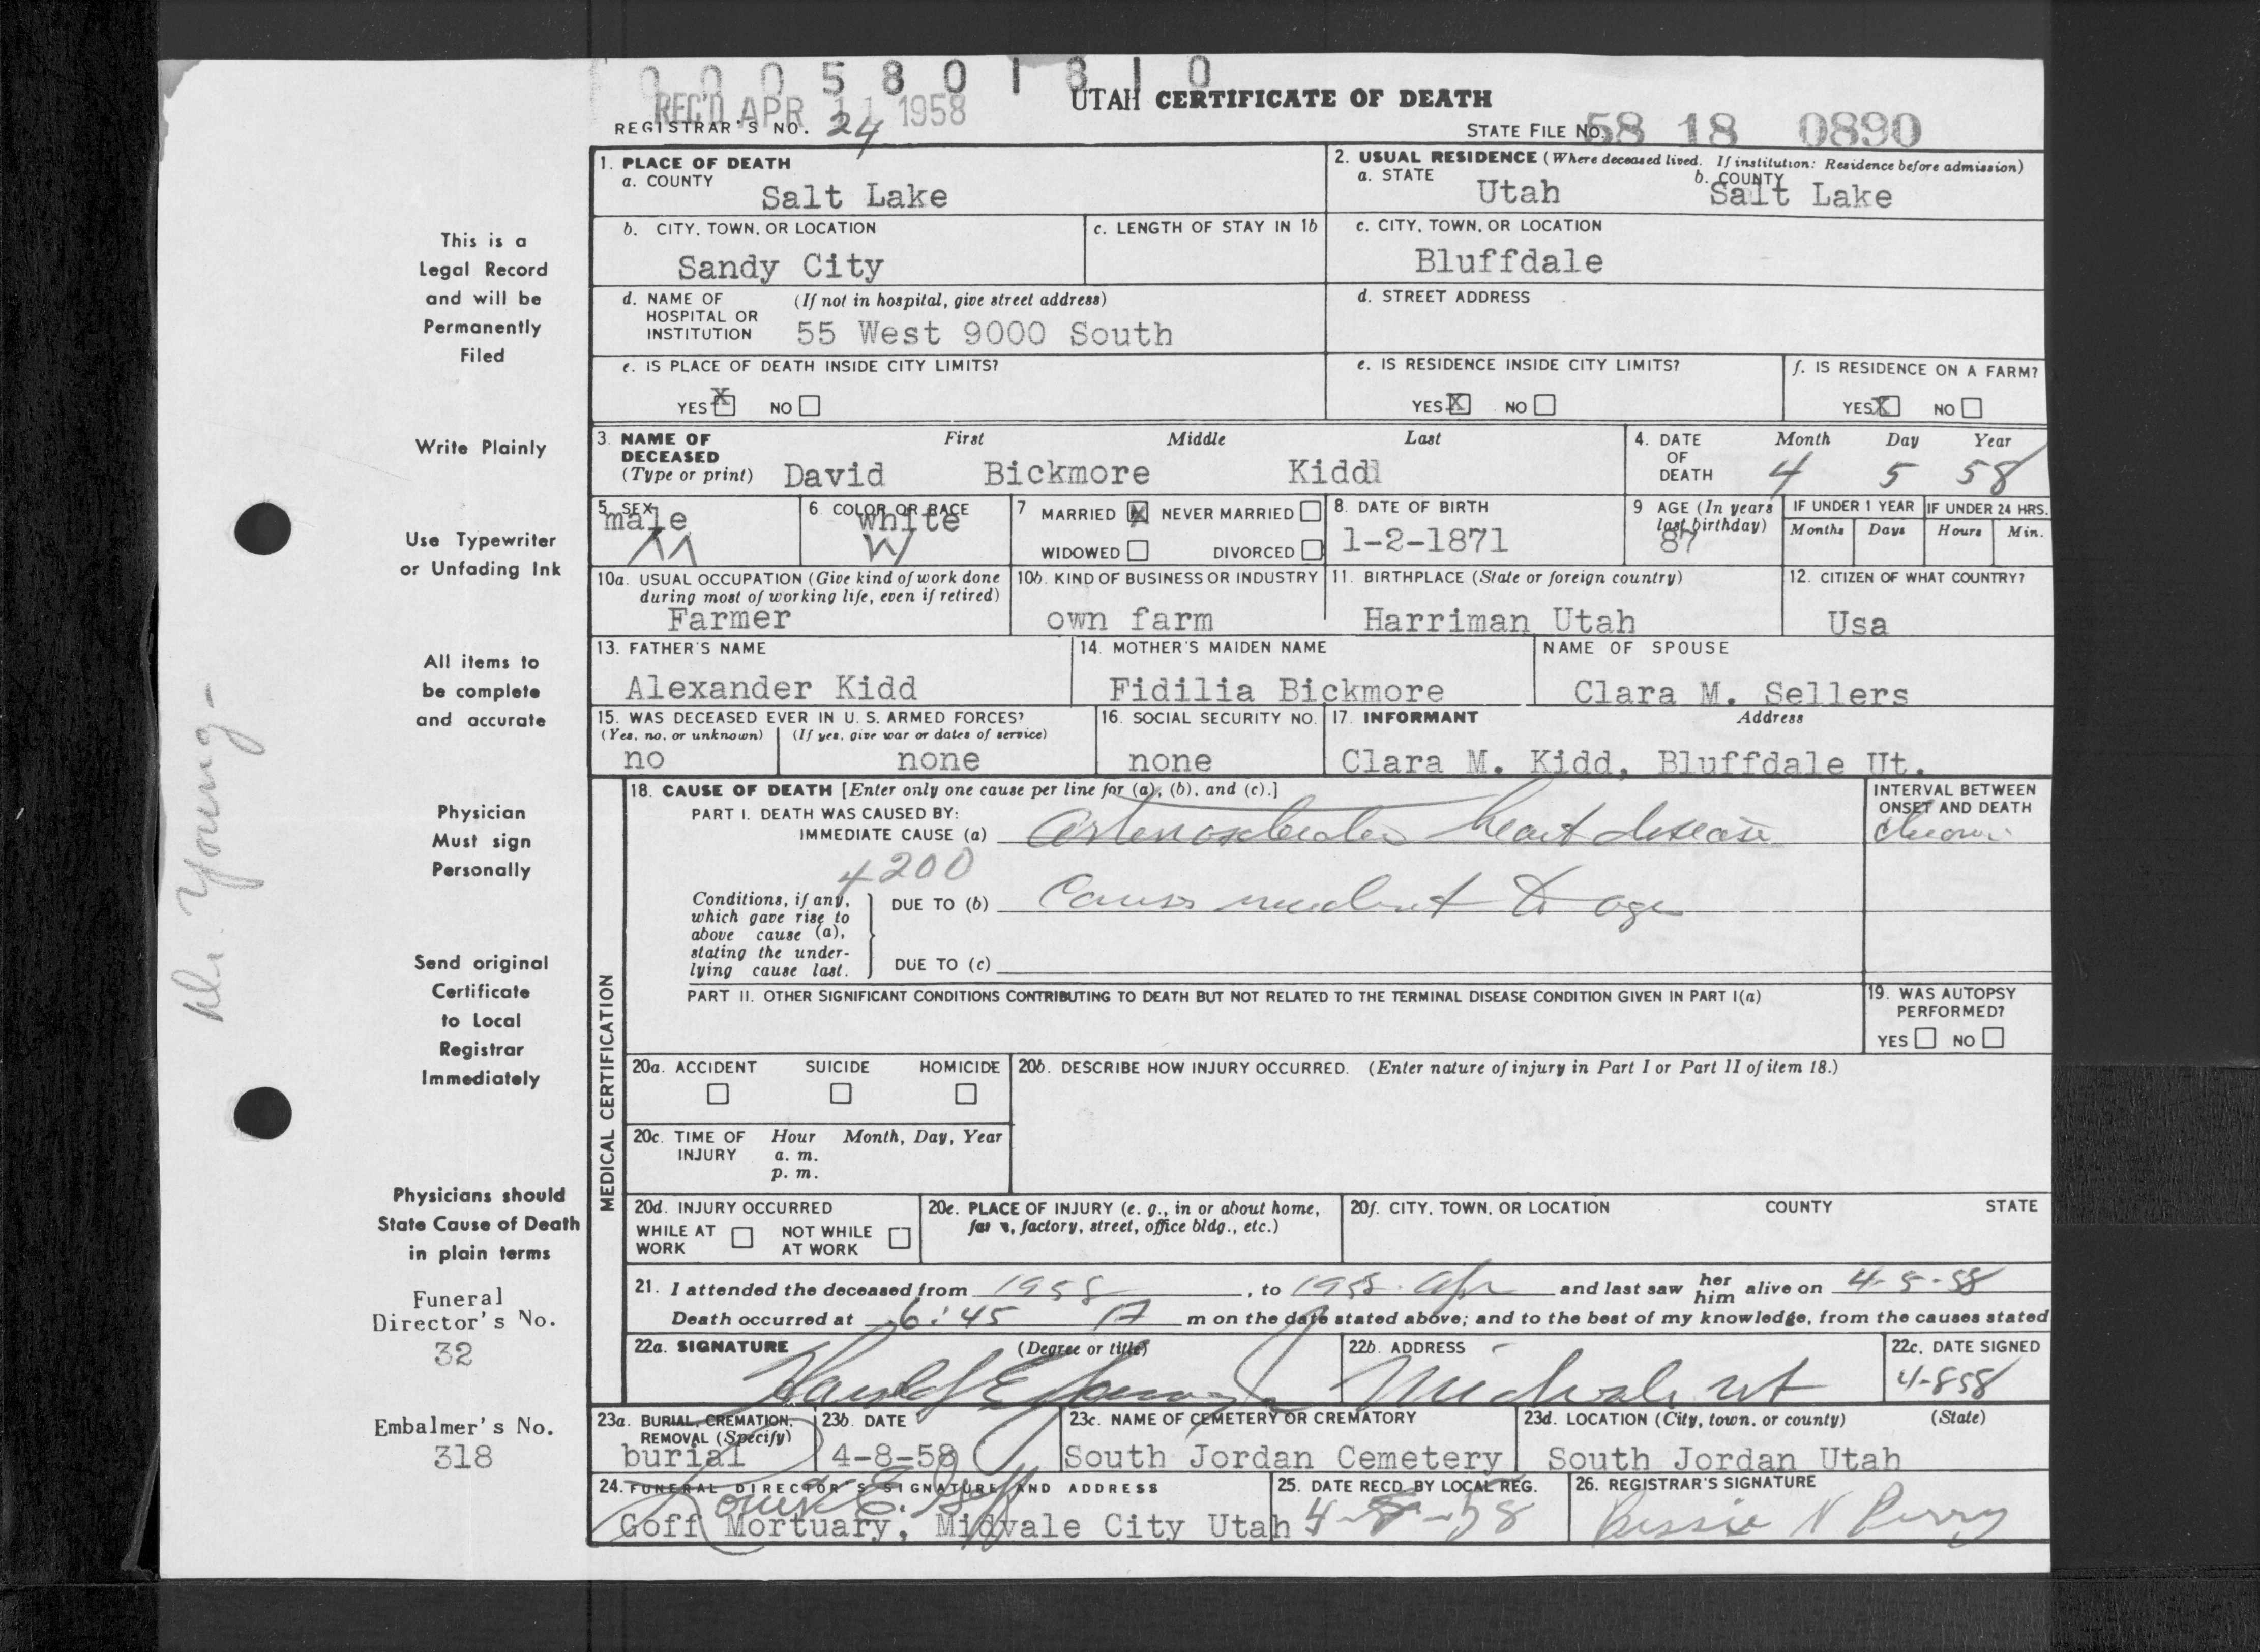 0 0 0 5 8 0 1 8 1 0
REC'D APR 11 1958
UTAH CERTIFICATE OF DEATH
REGISTRAR'S NO. 24
STATE FILE NO. 58 18 0890
1. PLACE OF DEATH
a. COUNTY
Salt Lake
2. USUAL RESIDENCE (Where deceased lived. If institution: Residence before admission)
a. STATE
Utah
b. COUNTY
Salt Lake
b. CITY, TOWN, OR LOCATION
Sandy City
c. LENGTH OF STAY IN 1b
c. CITY, TOWN, OR LOCATION
Bluffdale
d. NAME OF (If not in hospital, give street address)
HOSPITAL OR
INSTITUTION 55 West 9000 South
d. STREET ADDRESS
e. IS PLACE OF DEATH INSIDE CITY LIMITS?
YES X NO
e. IS RESIDENCE INSIDE CITY LIMITS?
YES X NO
f. IS RESIDENCE ON A FARM?
YES X NO
3. NAME OF DECEASED
(Type or print)
First Middle Last
David Bickmore Kidd
4. DATE OF DEATH
Month Day Year
4 5 58
5. SEX
male
M
6 COLOR OR RACE
white
W
7 MARRIED X NEVER MARRIED
WIDOWED DIVORCED
8. DATE OF BIRTH
1-2-1871
9 AGE (In years last birthday)
87
IF UNDER 1 YEAR
Months Days
IF UNDER 24 HRS.
Hours Min.
10a. USUAL OCCUPATION (Give kind of work done
during most of working life, even if retired)
Farmer
10b. KIND OF BUSINESS OR INDUSTRY
own farm
11. BIRTHPLACE (State or foreign country)
Harriman Utah
12. CITIZEN OF WHAT COUNTRY?
Usa
13. FATHER'S NAME
Alexander Kidd
14. MOTHER'S MAIDEN NAME
Fidilia Bickmore
NAME OF SPOUSE
Clara M. Sellers
15. WAS DECEASED EVER IN U. S. ARMED FORCES?
(Yes, no, or unknown) (If yes, give war or dates of service)
no none
16. SOCIAL SECURITY NO.
none
17. INFORMANT Address
Clara M. Kidd, Bluffdale Ut.
MEDICAL CERTIFICATION
18. CAUSE OF DEATH [Enter only one cause per line for (a), (b), and (c).]
PART I. DEATH WAS CAUSED BY:
IMMEDIATE CAUSE (a) heart disease
4200
INTERVAL BETWEEN
ONSET AND DEATH
Conditions, if any,
which gave rise to
above cause (a),
stating the under-
lying cause last.
DUE TO (b) to age
DUE TO (c)
PART II. OTHER SIGNIFICANT CONDITIONS CONTRIBUTING TO DEATH BUT NOT RELATED TO THE TERMINAL DISEASE CONDITION GIVEN IN PART I(a)
19. WAS AUTOPSY
PERFORMED?
YES NO
20a. ACCIDENT SUICIDE HOMICIDE
20b. DESCRIBE HOW INJURY OCCURRED. (Enter nature of injury in Part I or Part II of item 18.)
20c. TIME OF INJURY
Hour Month, Day, Year
a. m.
p. m.
20d. INJURY OCCURRED
WHILE AT WORK NOT WHILE AT WORK
20e. PLACE OF INJURY (e. g., in or about home,
farm, factory, street, office bldg., etc.)
20f. CITY, TOWN, OR LOCATION COUNTY STATE
21. I attended the deceased from 1958, to 1958 Apr and last saw her him alive on 4-5-58
Death occurred at 6:45 A m on the date stated above; and to the best of my knowledge, from the causes stated
22a. SIGNATURE (Degree or title)
Harold E Young
22b. ADDRESS
Midvale Ut
22c. DATE SIGNED
4-8 58
23a. BURIAL, CREMATION,
REMOVAL (Specify)
burial
23b. DATE
4-8-58
23c. NAME OF CEMETERY OR CREMATORY
South Jordan Cemetery
23d. LOCATION (City, town, or county) (State)
South Jordan Utah
24. FUNERAL DIRECTOR'S SIGNATURE AND ADDRESS
Goff Mortuary, Midvale City Utah
25. DATE RECD. BY LOCAL REG.
4-8-58
26. REGISTRAR'S SIGNATURE
Bessie N Perry
This is a
Legal Record
and will be
Permanently
Filed
Write Plainly
Use Typewriter
or Unfading Ink
All items to
be complete
and accurate
Physician
Must sign
Personally
Send original
Certificate
to Local
Registrar
Immediately
Physicians should
State Cause of Death
in plain terms
Funeral
Director's No.
32
Embalmer's No.
318
Dr. Young-